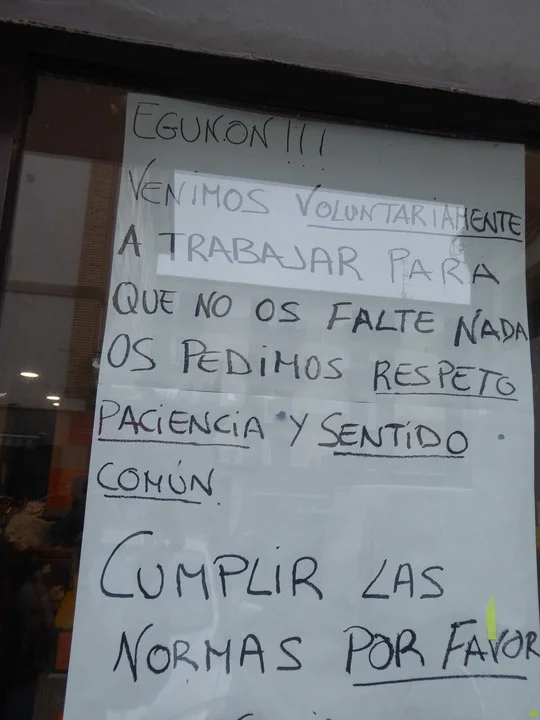 EGUN.ON!!!
VENIMOS VOLUNTARIAMENTE
A TRABAJAR PARA
QUE NO OS FALTE NADA
OS PEDIMOS RESPETO
PACIENCIA Y SENTIDO
COMÚN.
CUMPLIR LAS
NORMAS POR FAVOR